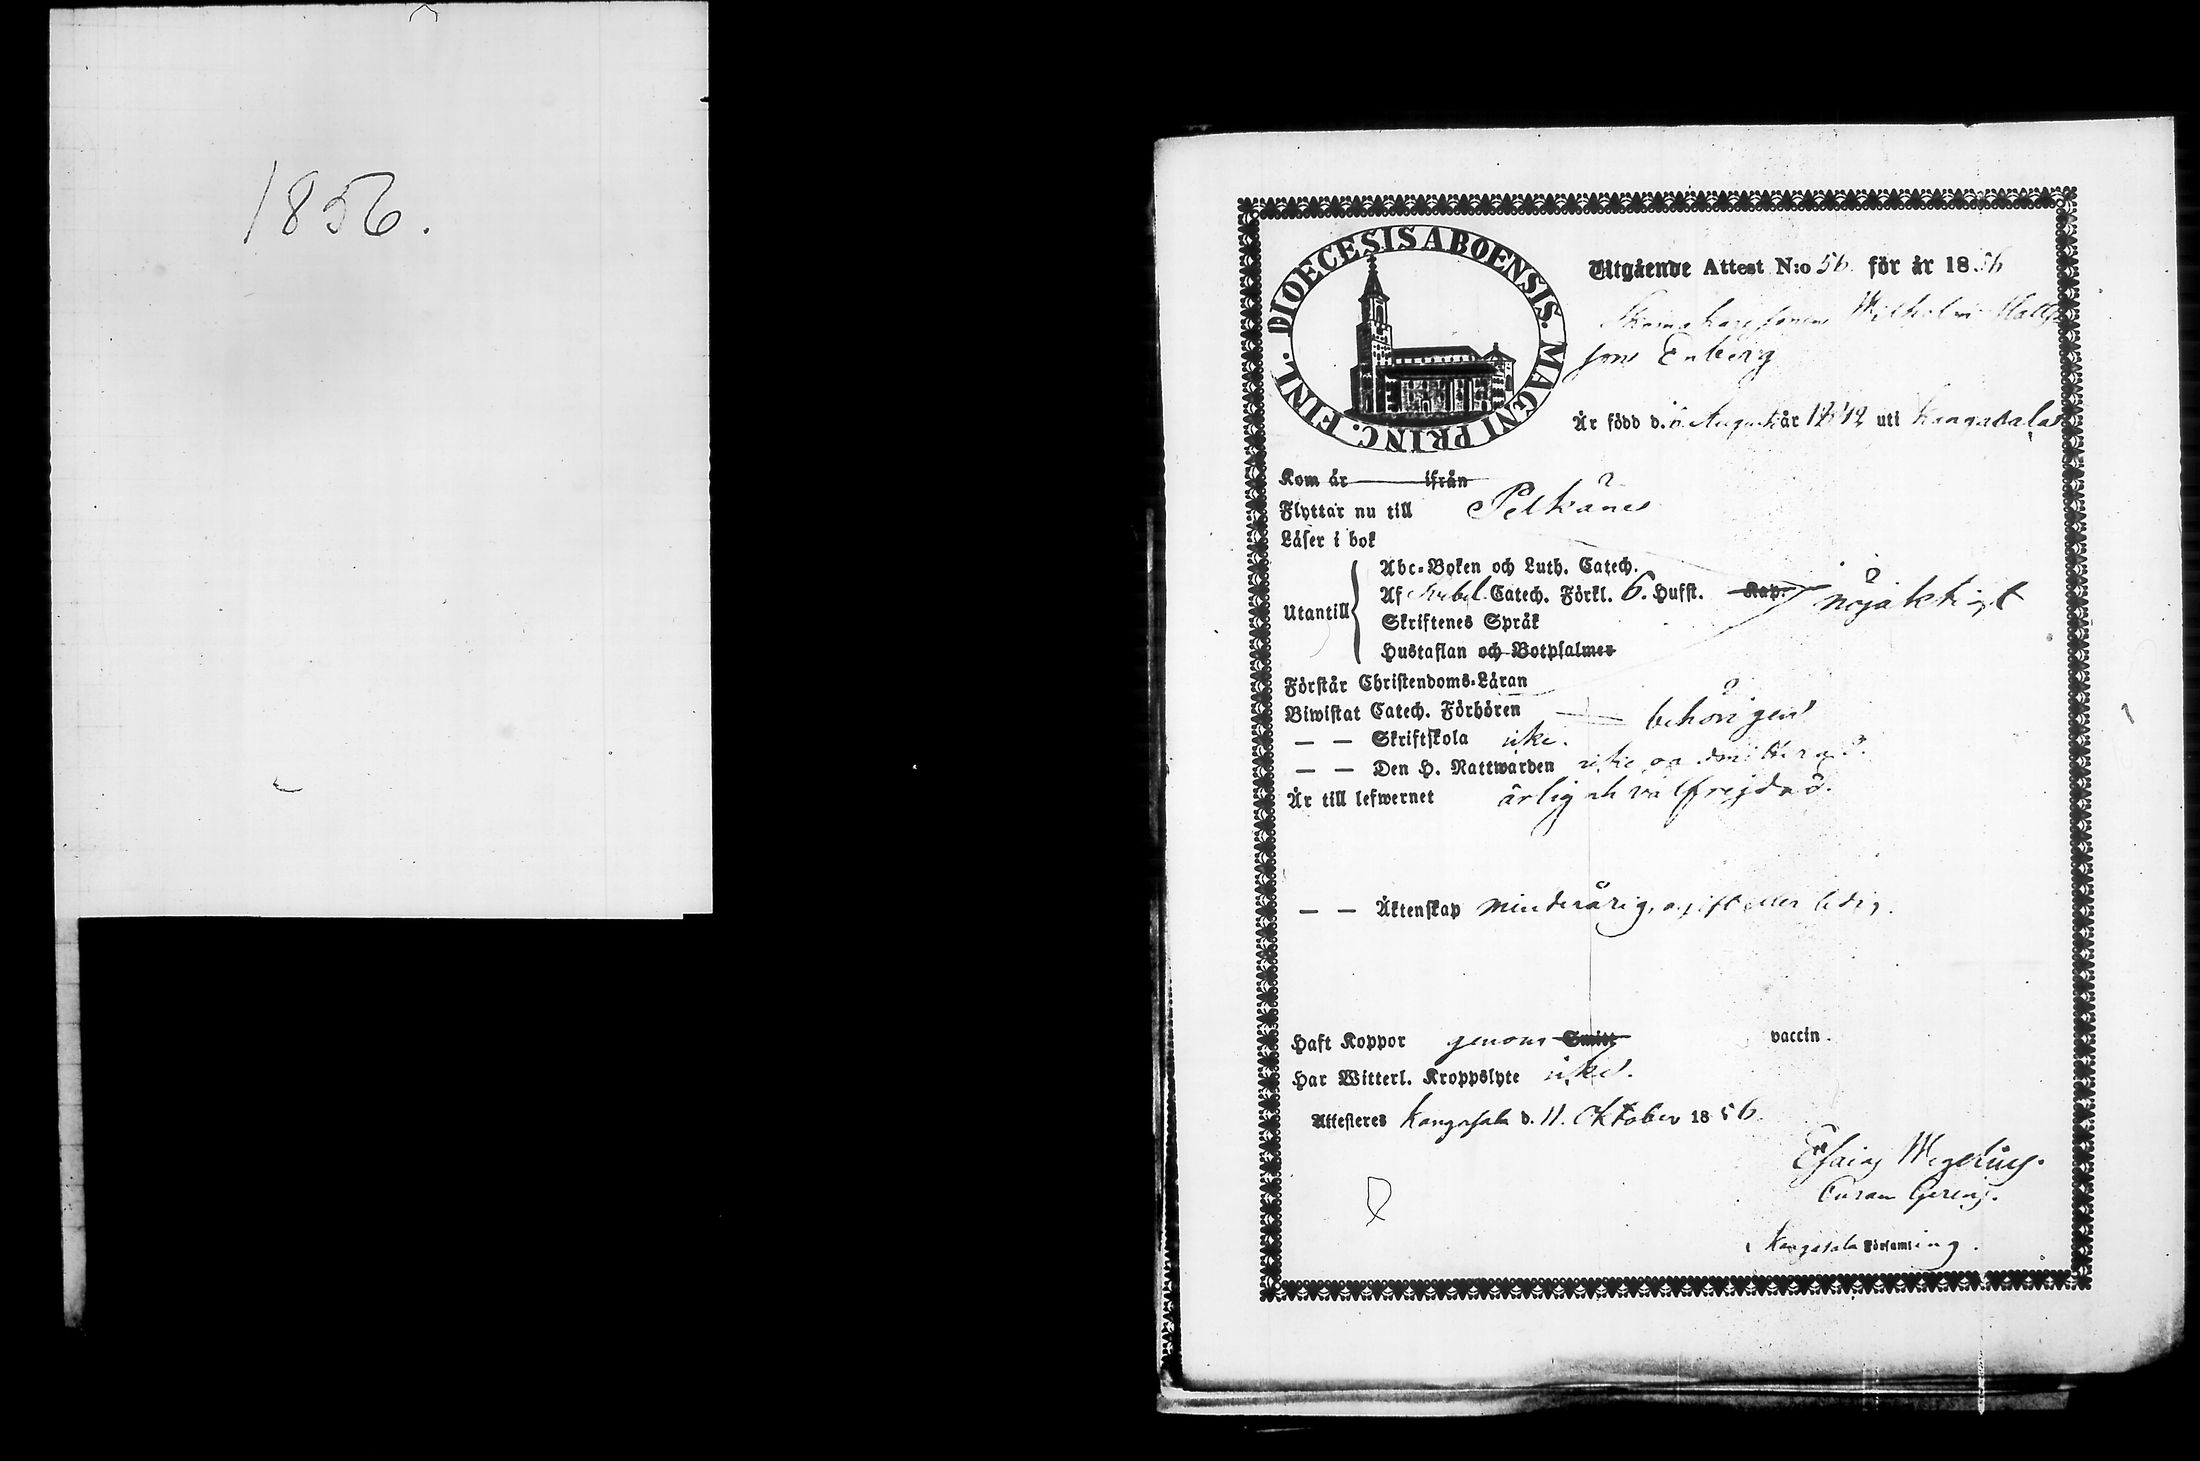 1856.
DIOECESIS ABOENSIS. MAGNI PRINC. FINL.
Utgående Attest N:o 56. för år 1856
Skomakaresonen Wilhelm Matts
son Enberg
Är född d. Augusti år 1842 uti Kangasala
Kom år ifrån
Flyttar nu till Pelkäne
Läser i bok
Abc-Boken och Luth. Catech.
Af Svebel. Catech. Förkl. 6. Hufst. Kap. nöjaktigt
Utantill
Skriftenes Språk
Hustaflan och Botpsalmer
Förstår Christendoms-Läran
Biwistat Catech. Förhören behörigen
— — Skriftskola icke.
— — Den H. Nattwarden icke admitterad.
Är till lefwernet ärlig och välfrejdad.
— — Äktenskap minderårig, ogift eller ledig.
Haft Koppor genom Smitt vaccin.
Har Witterl. Kroppslyte icke.
Attesteres Kangasala d. 11. Oktober 1856
Esaias Wegelius.
Curam Gerens.
Kangasala Församling.